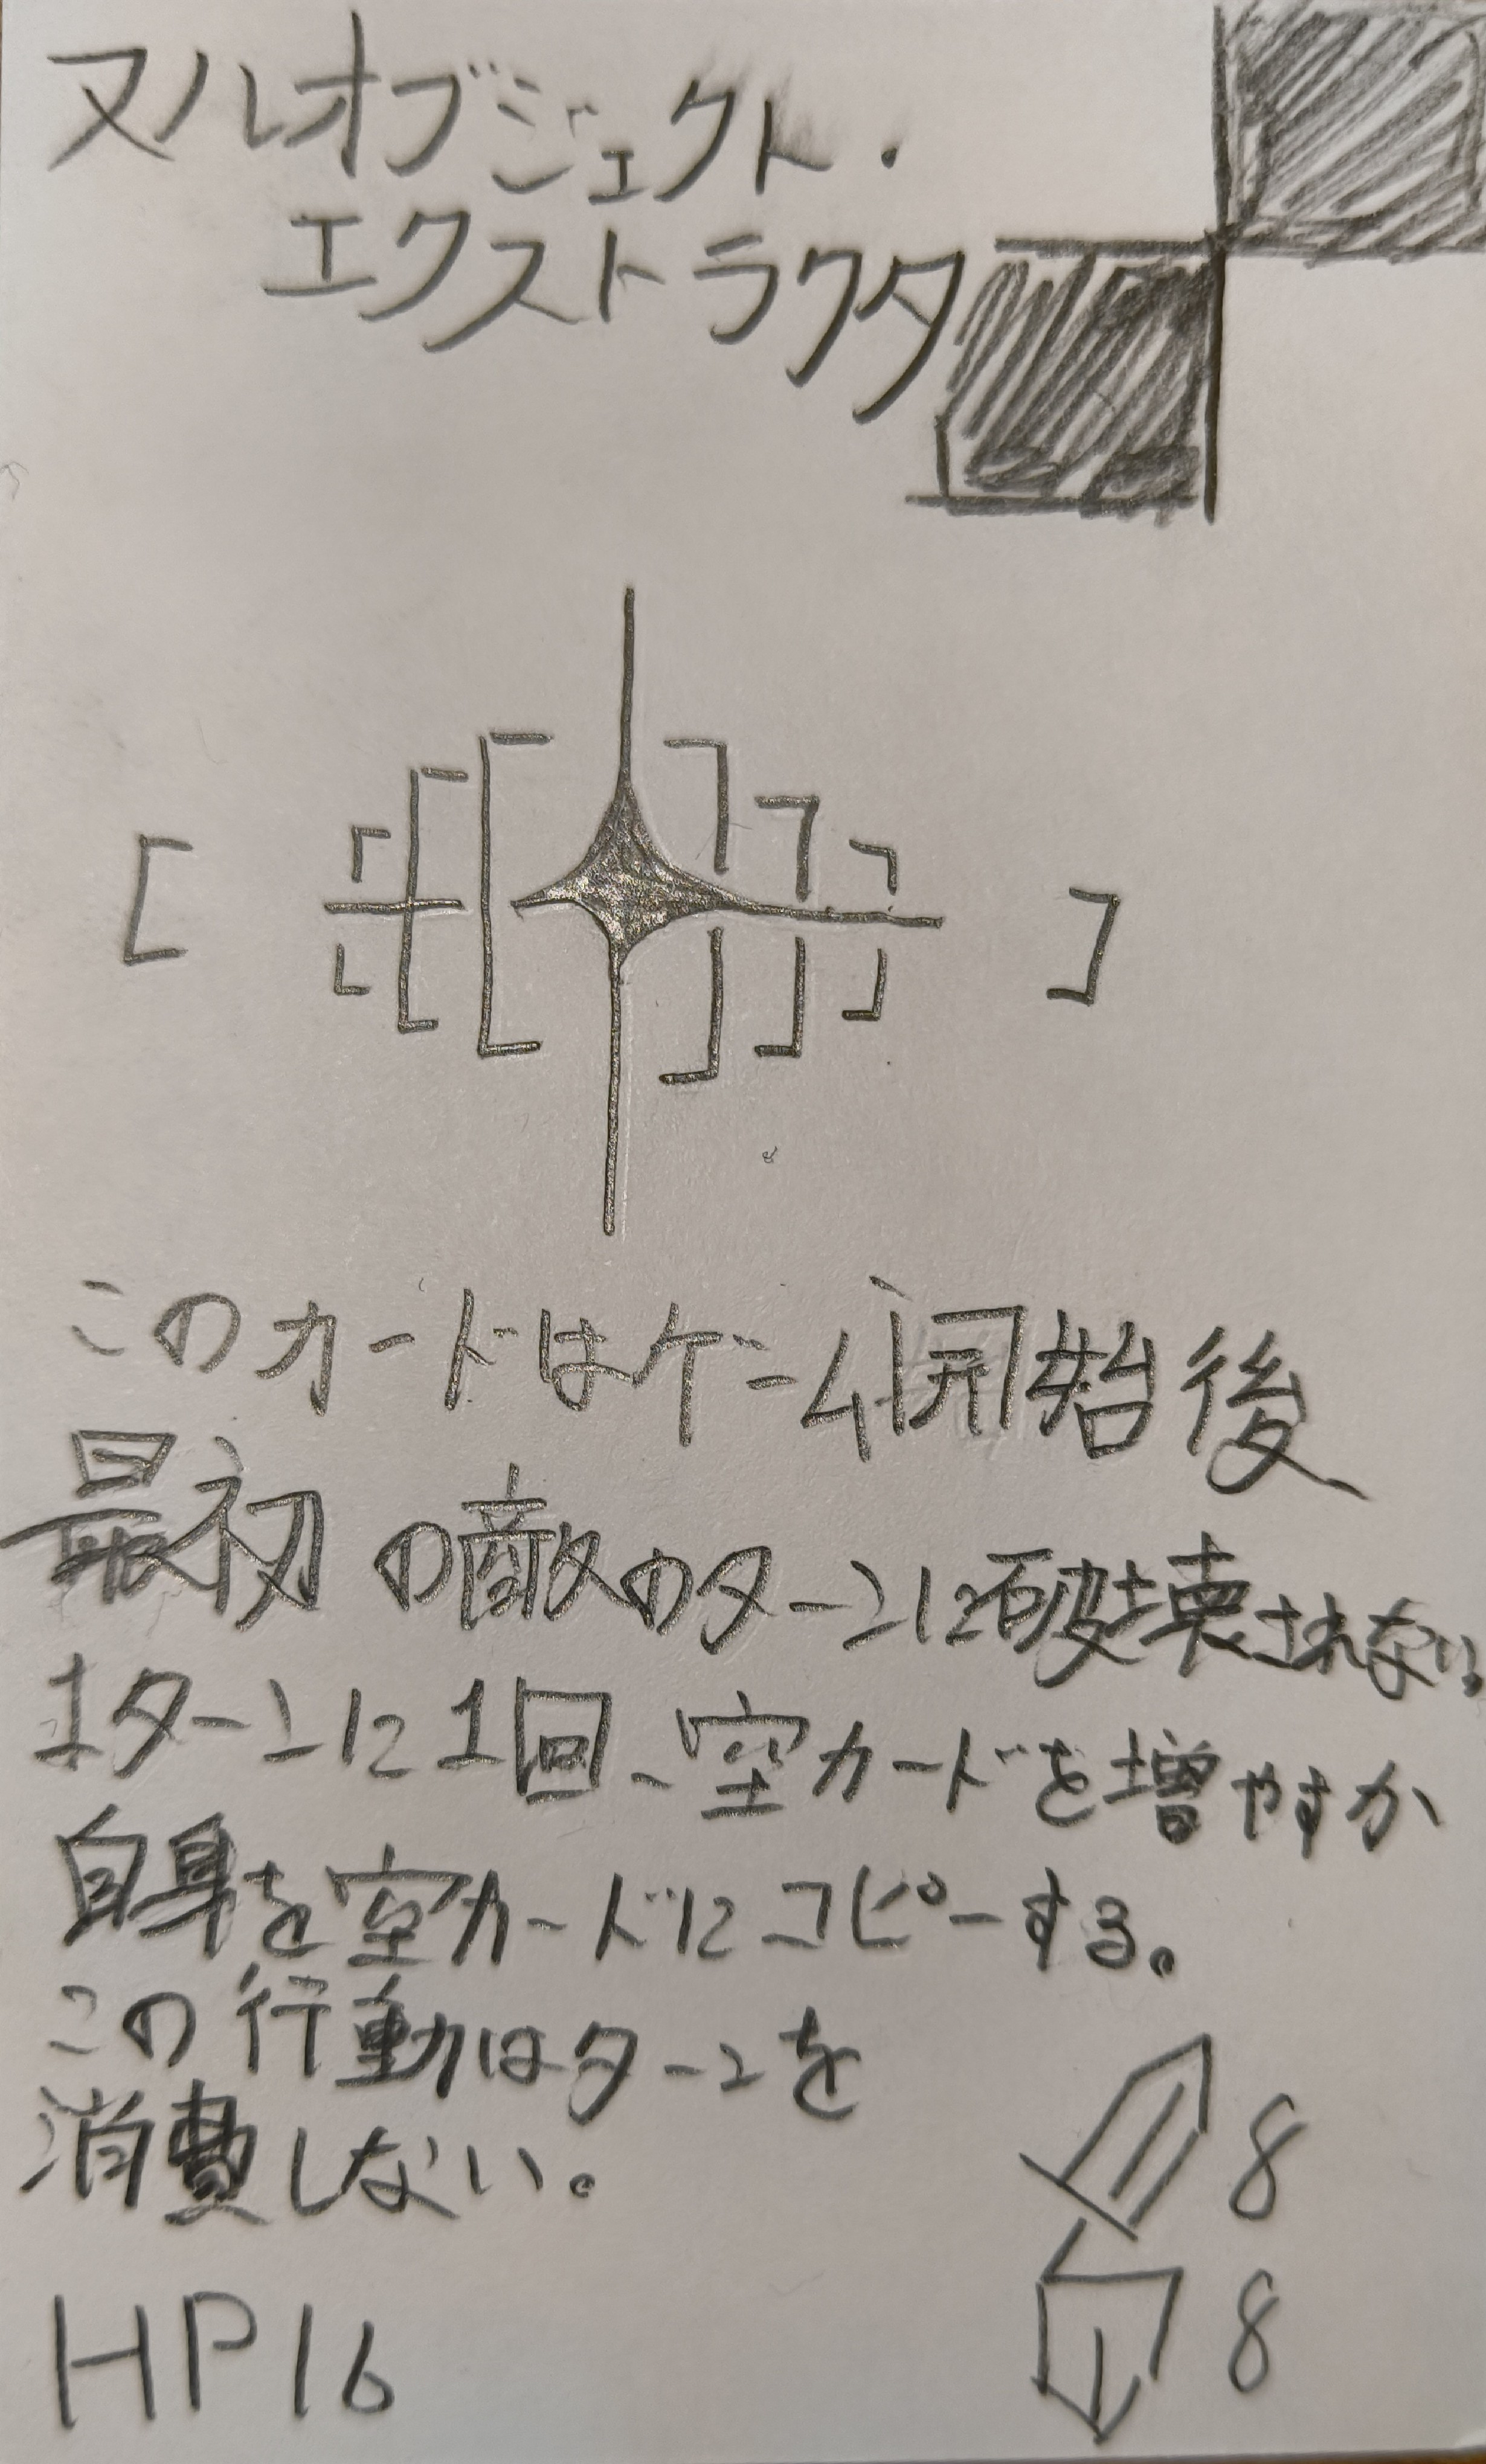 ヌルオブジェクト・
エクストラクタ
このカードはゲーム開始後
最初の敵のターンに破壊されない。
1ターンに1回、空カードを増やすか
自身を空カードにコピーする。
この行動はターンを
消費しない。
8
8
HP16